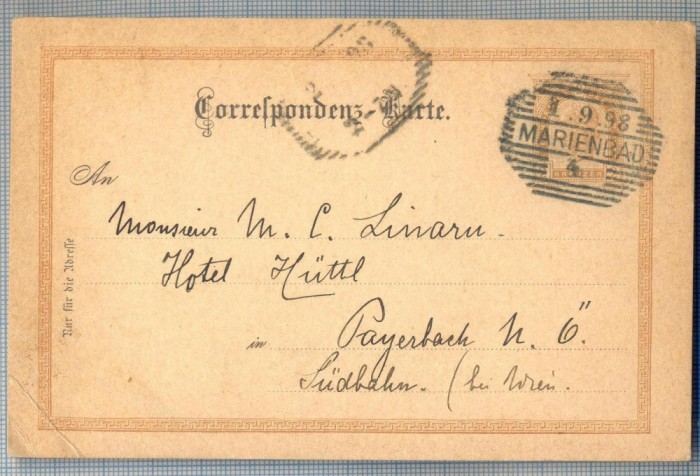 Correspondenz-Karte.
1.9.98
MARIENBAD
4
An
Monsieur M. C. Linaru.
Hotel Hüttl
in Payerbach N. Ö.
Südbahn. (bei Wien.
Nur für die Adresse